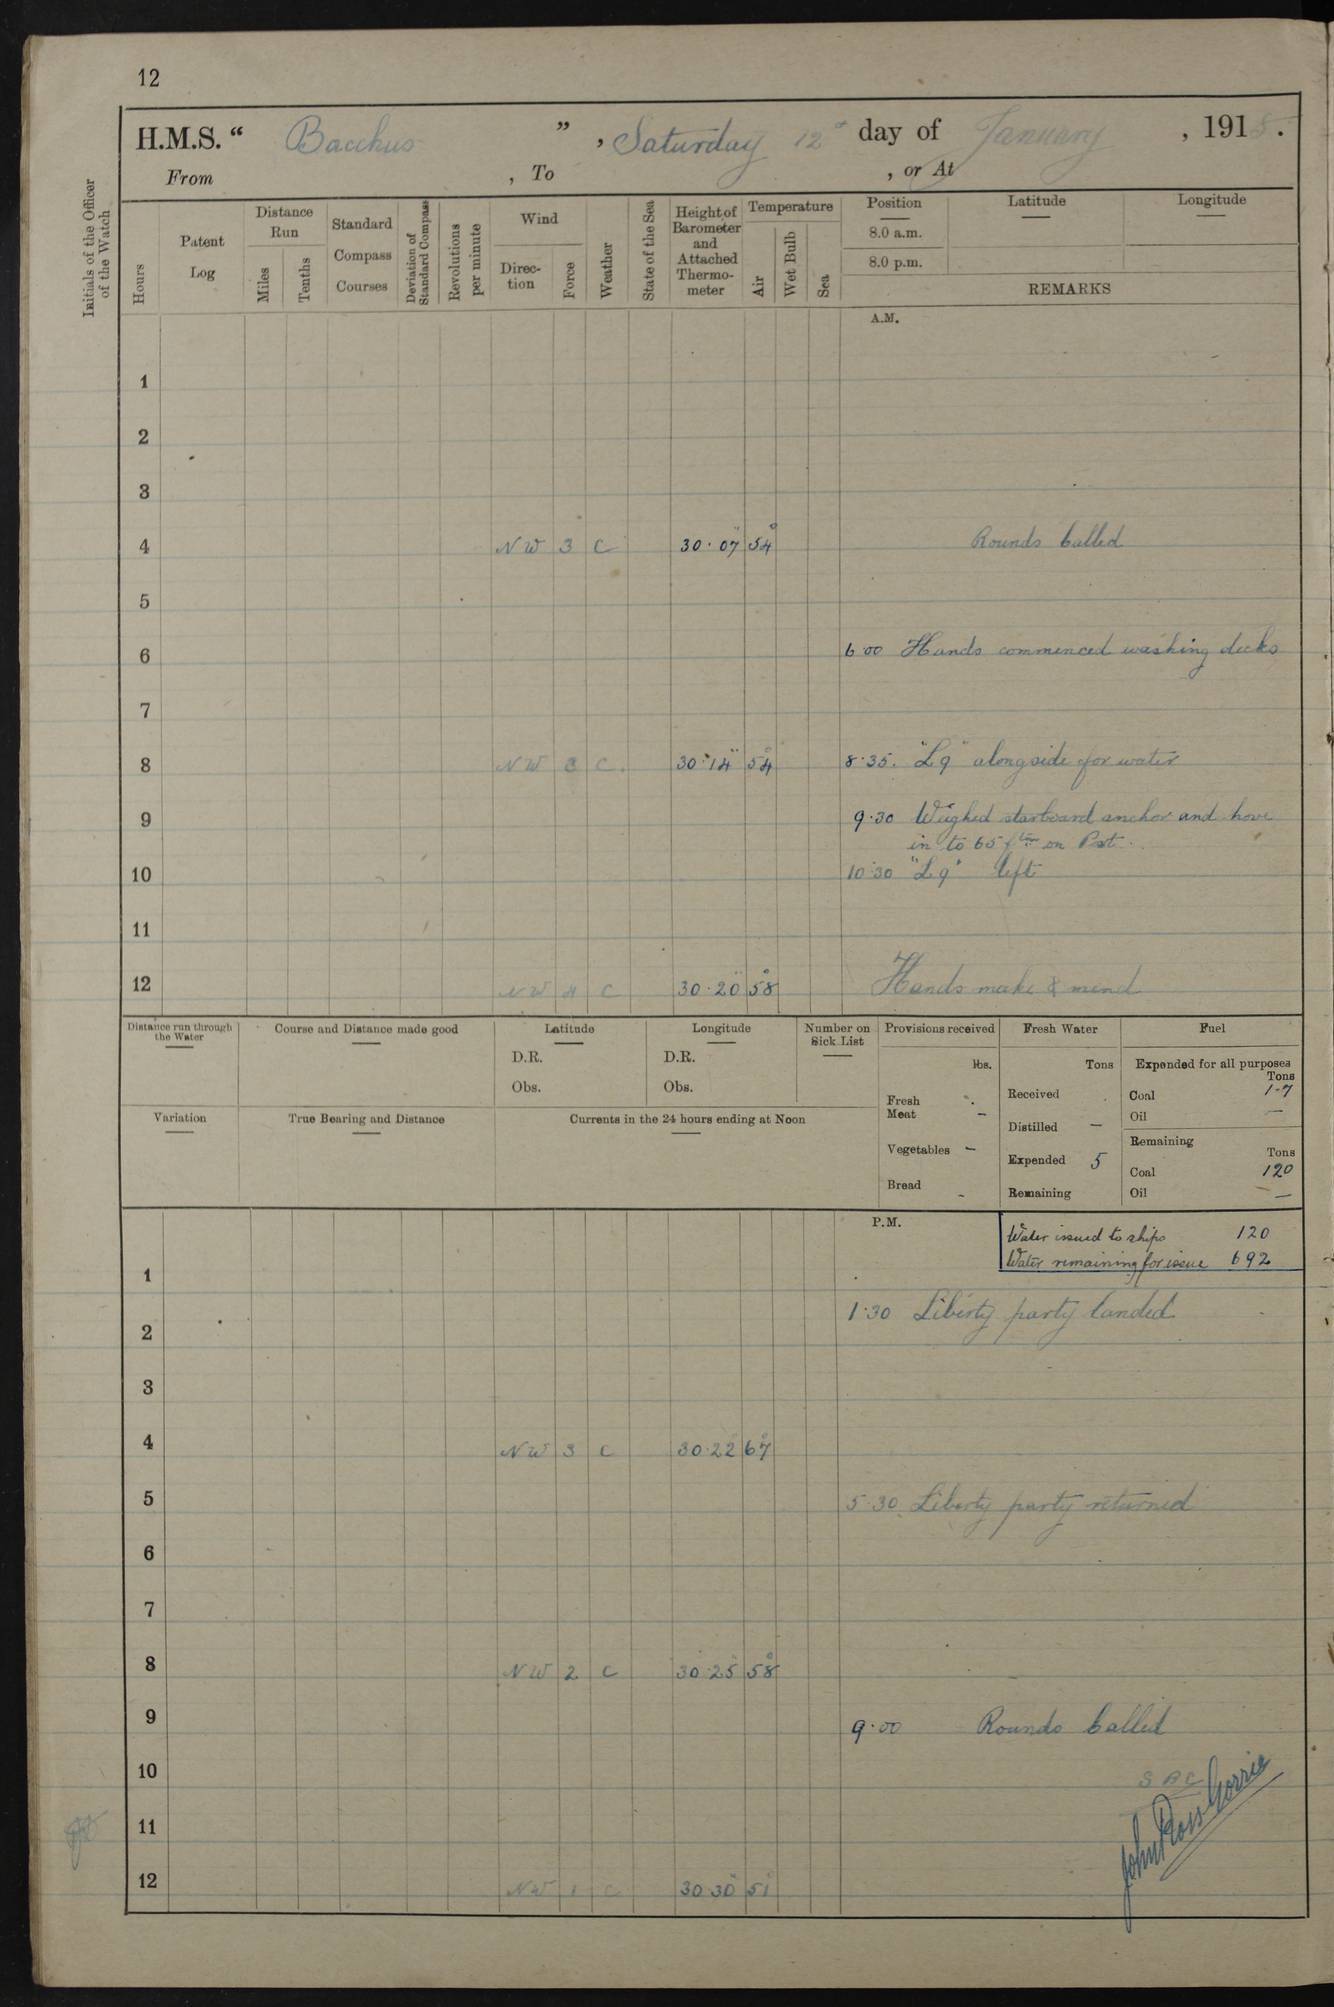 12
H.M.S. “ Bacchus ” , Saturday 12th day of January , 1918 .
From , To , or At
Initials of the Officer of the Watch
Hours
Patent Log
Distance Run
Miles
Tenths
Standard Compass Courses
Deviation of Standard Compass
Revolutions per minute
Wind
Direc-tion
Force
Weather
State of the Sea
Height of Barometer and Attached Thermo-meter
Temperature
Air
Wet Bulb
Sea
Position Latitude Longitude
8.0 a.m.
8.0 p.m.
REMARKS
A.M.
1
2
3
4 NW 3 C 30·07 54 Rounds Called
5
6 6·00 Hands commenced washing decks
7
8 NW 3 C. 30·14 54 8·35. "L9" alongside for water
9 9·30 Weighed starboard anchor and hove
in to 65 fms on Port.
10 10·30 "L9" left
11
12 NW 4 C 30·20 58 Hands make & mend
Distance run through the Water
Course and Distance made good
Latitude
D.R.
Obs.
Longitude
D.R.
Obs.
Number on Sick List
Variation
True Bearing and Distance
Currents in the 24 hours ending at Noon
Provisions received
lbs.
Fresh Meat –
Vegetables –
Bread –
Fresh Water
Tons
Received
Distilled –
Expended 5
Remaining
Fuel
Expended for all purposes
Tons
Coal 1-7
Oil –
Remaining
Tons
Coal 120
Oil –
P.M.
Water issued to ships 120
Water remaining for issue 692
1
1·30 Liberty party landed
2
3
4 NW 3 C 30·22 67
5 5·30 Liberty party returned
6
7
8 NW 2 C 30·25 58
9 9·00 Rounds Called
10 S B C
11 John Ross Gorrie
12 NW 1 C 30·30 51